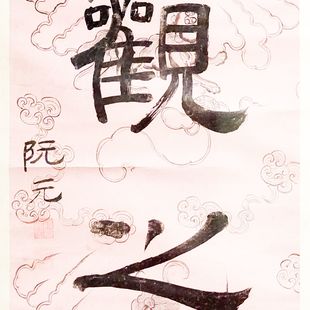 觀之
阮元